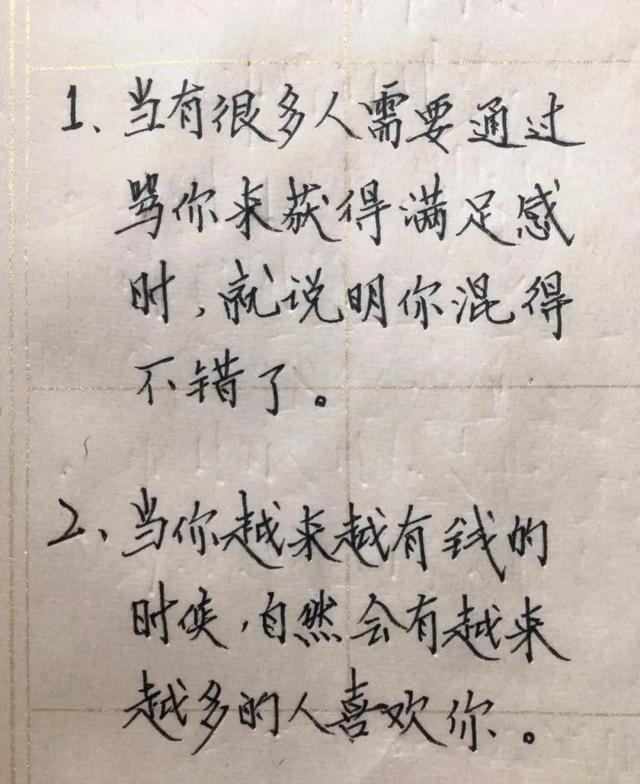 1、当有很多人需要通过
骂你来获得满足感
时,就说明你混得
不错了。
2、当你越来越有钱的
时候,自然会有越来
越多的人喜欢你。